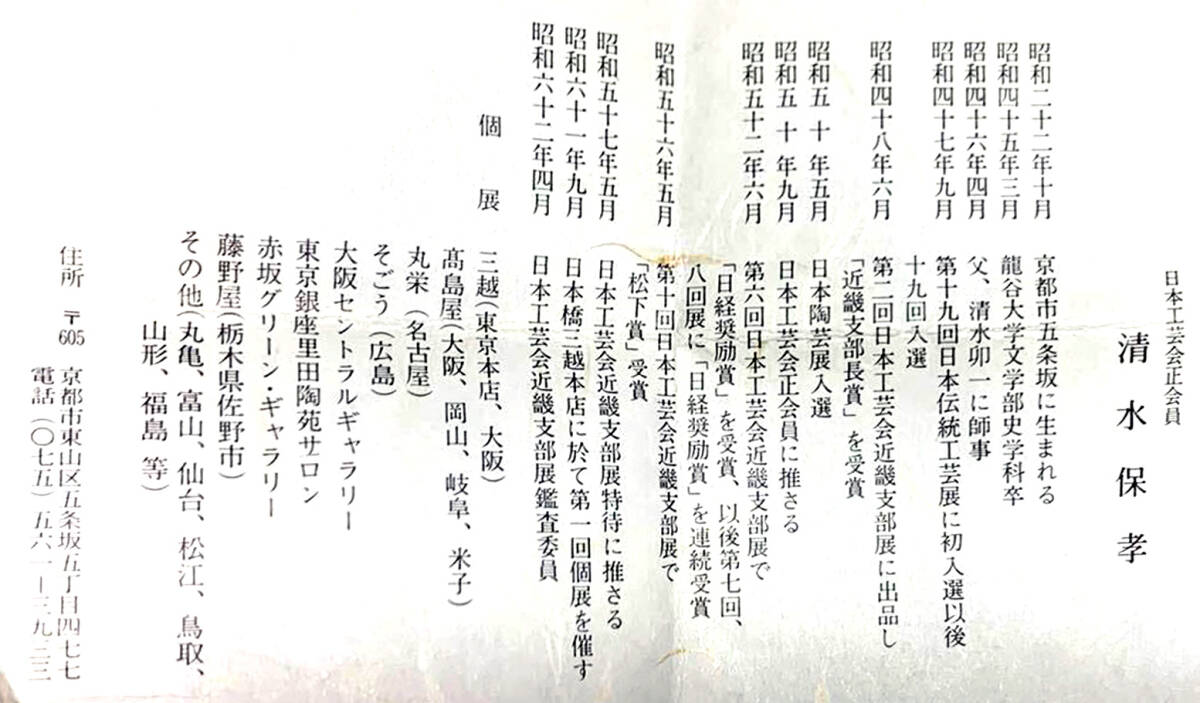 日本工芸会正会員
清水保孝
昭和二十二年十月 京都市五条坂に生まれる
昭和四十五年三月 龍谷大学文学部史学科卒
昭和四十六年四月 父、清水卯一に師事
昭和四十七年九月 第十九回日本伝統工芸展に初入選以後
十九回入選
昭和四十八年六月 第二回日本工芸会近畿支部展に出品し
「近畿支部長賞」を受賞
昭和五十年五月 日本陶芸展入選
昭和五十年九月 日本工芸会正会員に推さる
昭和五十二年六月 第六回日本工芸会近畿支部展で
「日経奨励賞」を受賞、以後第七回、
八回展に「日経奨励賞」を連続受賞
昭和五十六年五月 第十回日本工芸会近畿支部展で
「松下賞」受賞
昭和五十七年五月 日本工芸会近畿支部展特待に推さる
昭和六十一年九月 日本橋三越本店に於て第一回個展を催す
昭和六十二年四月 日本工芸会近畿支部展鑑査委員
個展 三越(東京本店、大阪)
髙島屋(大阪、岡山、岐阜、米子)
丸栄(名古屋)
そごう(広島)
大阪セントラルギャラリー
東京銀座里田陶苑サロン
赤坂グリーン・ギャラリー
藤野屋(栃木県佐野市)
その他(丸亀、富山、仙台、松江、鳥取、
山形、福島 等)
住所 〒605 京都市東山区五条坂五丁目四七七
電話(〇七五)五六一ー三九三三